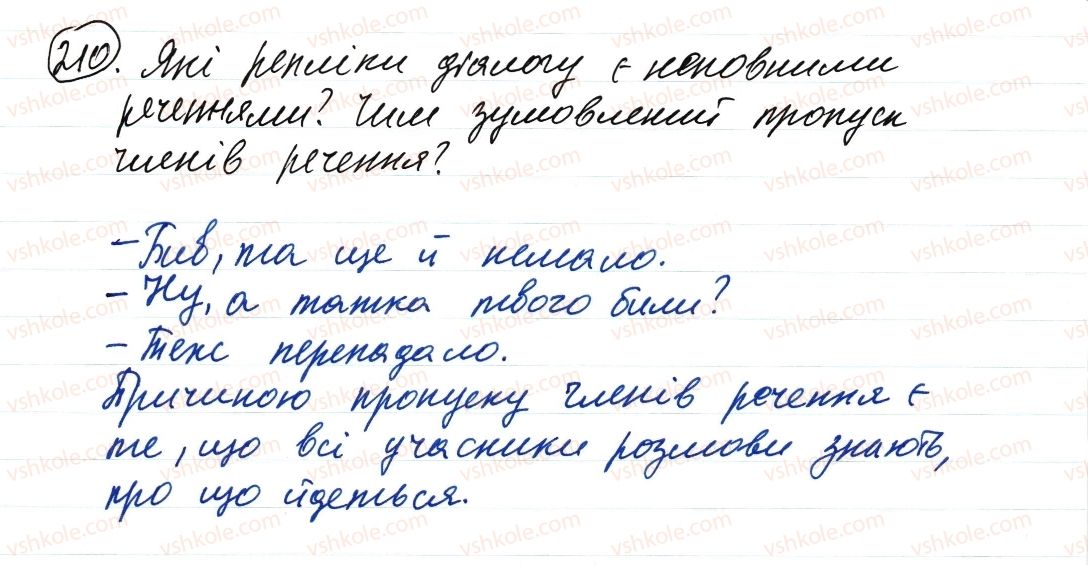 210. Які репліки діалогу є неповними
реченнями? Чим зумовлений пропуск
членів речення?
- Бив, та ще й немало.
- Ну, а татка твого били?
- Теж перепадало.
Причиною пропуску членів речення є
те, що всі учасники розмови знають,
про що йдеться.